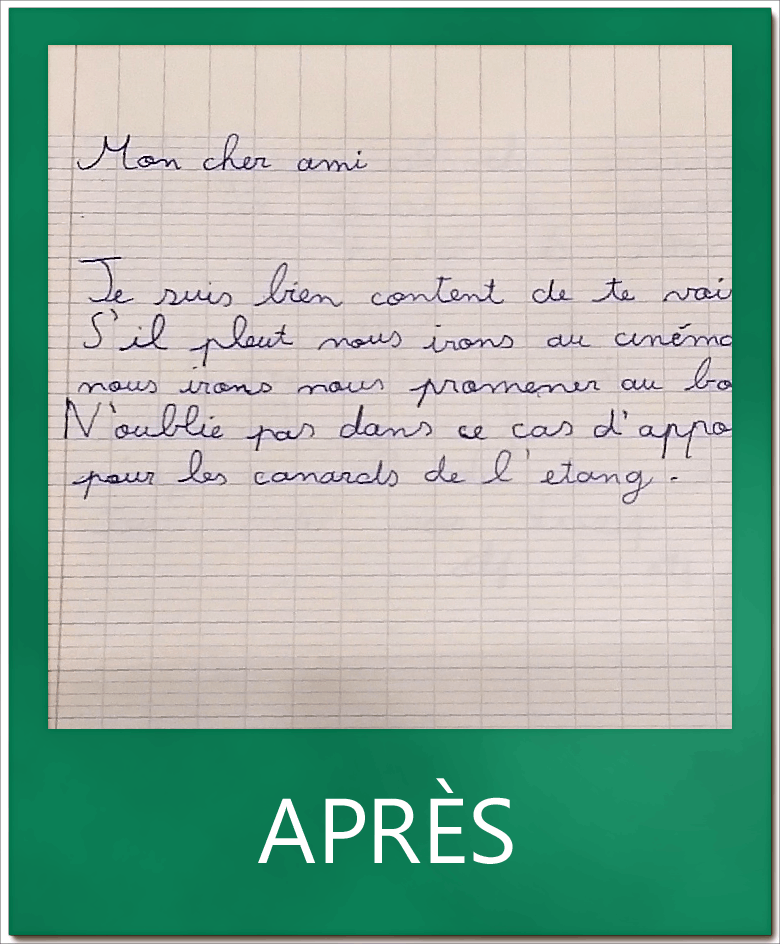 Mon cher ami
Je suis bien content de te voi
S'il pleut nous irons au cinéma
nous irons nous promener au bo
N'oublie pas dans ce cas d'appo
pour les canards de l'etang.
APRÈS